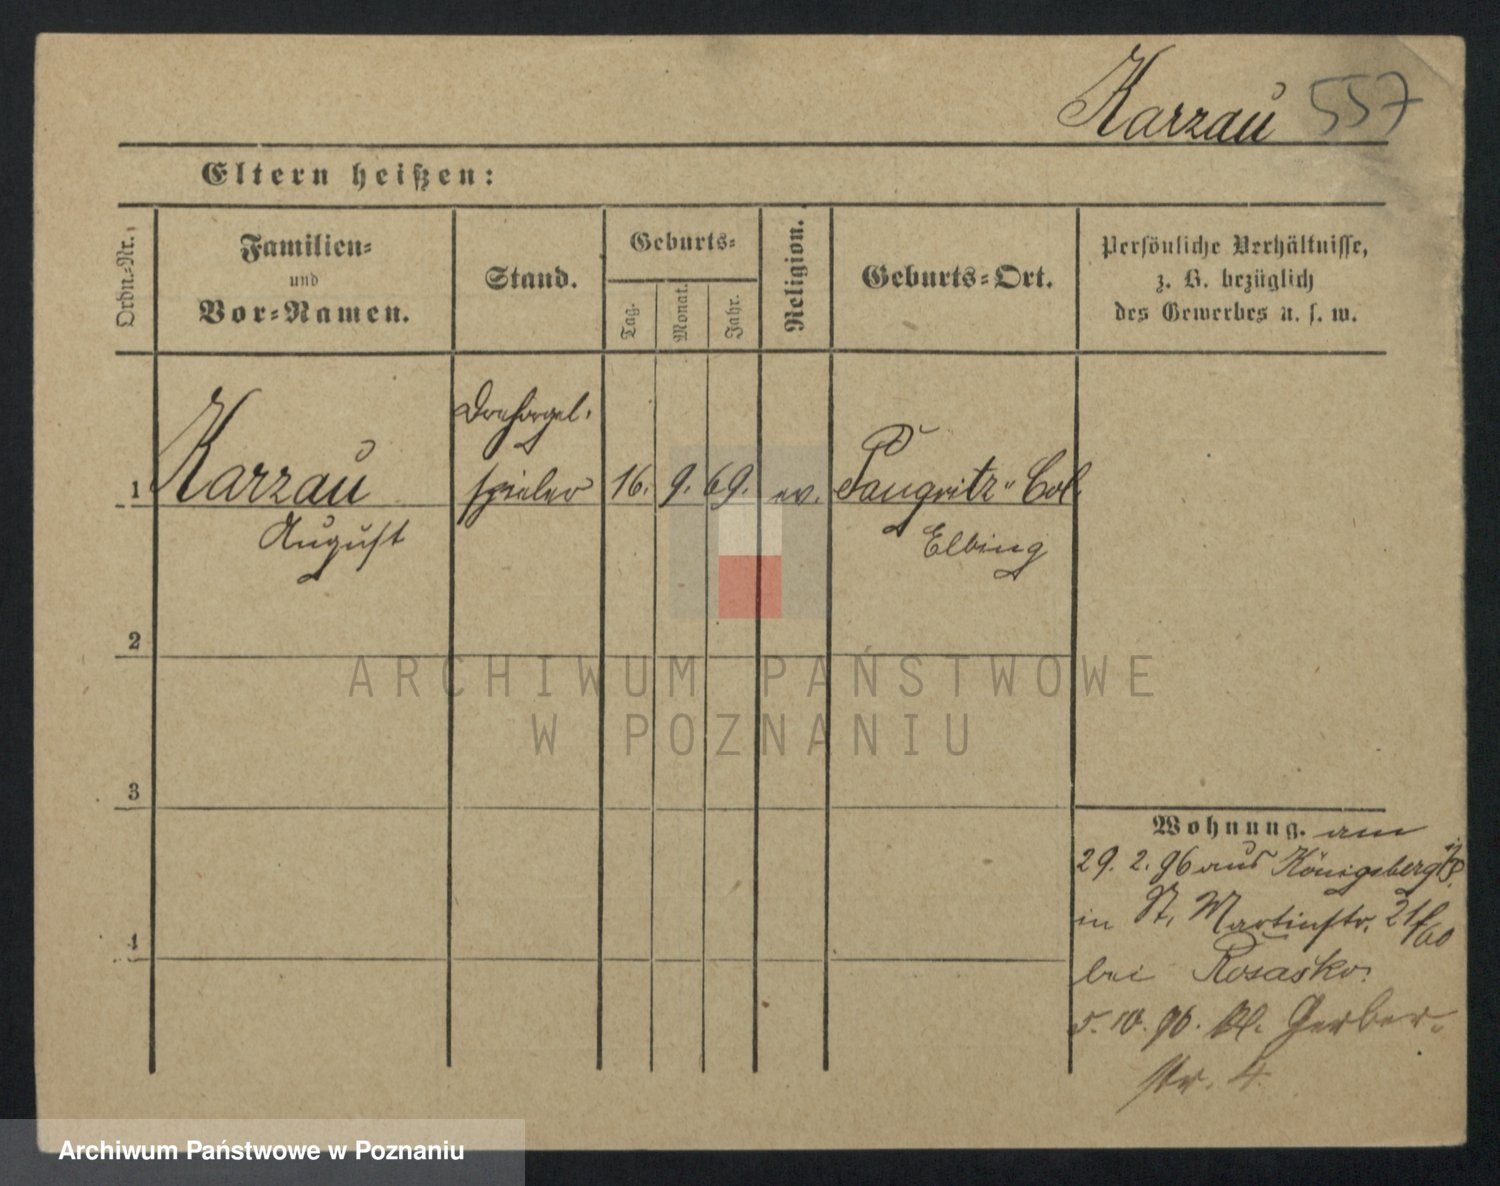 Karzau 557
Eltern heißen:
Ordn.-Nr.
Familien-
und
Vor-Namen.
Stand.
Geburts-
Tag.
Monat.
Jahr.
Religion.
Geburts-Ort.
Persönliche Verhältnisse,
z. B. bezüglich
des Gewerbes u. s. w.
Drehorgel-
1 Karzau spieler 16. 9. 69. ev. Pangritz-Col.
August Elbing
2
ARCHIWUM PAŃSTWOWE
W POZNANIU
3
Wohnung. am
29. 2. 96 aus Königsberg i/P.
4
in St. Martinstr. 21/60
bei Rosasko.
5. 10. 96. Kl. Gerber-
str. 4.
Archiwum Państwowe w Poznaniu